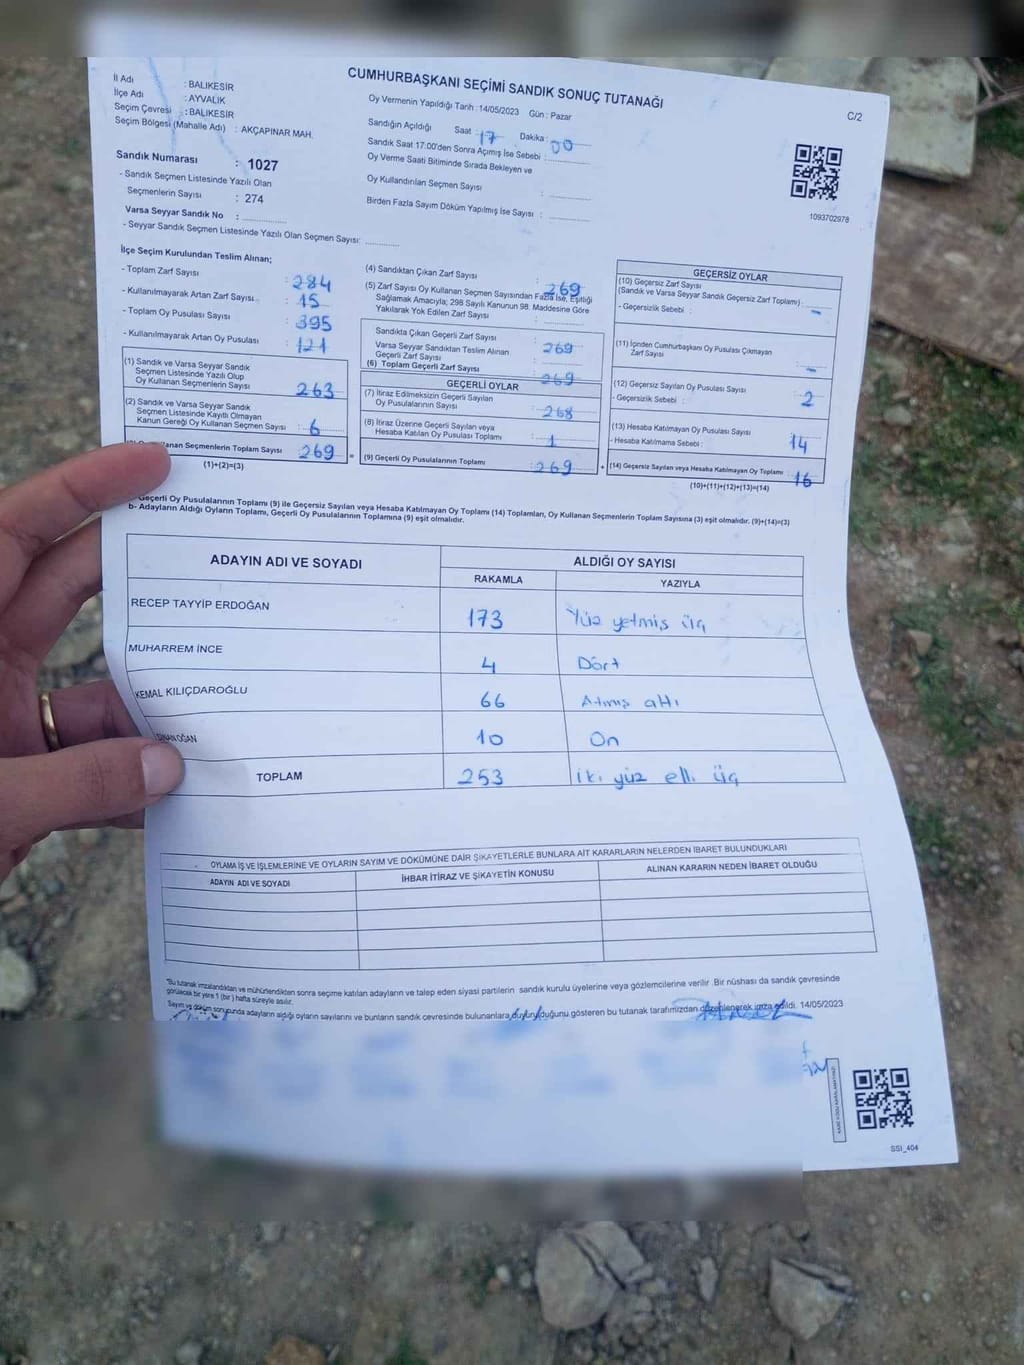 CUMHURBAŞKANI SEÇİMİ SANDIK SONUÇ TUTANAĞI
C/2
İl Adı : BALIKESİR
İlçe Adı : AYVALIK
Seçim Çevresi : BALIKESİR
Seçim Bölgesi (Mahalle Adı) : AKÇAPINAR MAH.
Sandık Numarası : 1027
- Sandık Seçmen Listesinde Yazılı Olan
Seçmenlerin Sayısı : 274
Varsa Seyyar Sandık No : ..............
- Seyyar Sandık Seçmen Listesinde Yazılı Olan Seçmen Sayısı: ............
Oy Vermenin Yapıldığı Tarih :14/05/2023 Gün : Pazar
Sandığın Açıldığı Saat : 17 Dakika : 00
Sandık Saat 17:00'den Sonra Açımış İse Sebebi : ..............
Oy Verme Saati Bitiminde Sırada Bekleyen ve
Oy Kullandırılan Seçmen Sayısı : ..............
Birden Fazla Sayım Döküm Yapılmış İse Sayısı : ..............
1093702978
İlçe Seçim Kurulundan Teslim Alınan;
- Toplam Zarf Sayısı : 284
- Kullanılmayarak Artan Zarf Sayısı : 15
- Toplam Oy Pusulası Sayısı : 395
- Kullanılmayarak Artan Oy Pusulası : 121
(1) Sandık ve Varsa Seyyar Sandık
Seçmen Listesinde Yazılı Olup
Oy Kullanan Seçmenlerin Sayısı : 263
(2) Sandık ve Varsa Seyyar Sandık
Seçmen Listesinde Kayıtlı Olmayan
Kanun Gereği Oy Kullanan Seçmen Sayısı : 6
Kullanan Seçmenlerin Toplam Sayısı : 269
(1)+(2)=(3)
(4) Sandıktan Çıkan Zarf Sayısı : 269
(5) Zarf Sayısı Oy Kullanan Seçmen Sayısından Fazla İse, Eşitliği
Sağlamak Amacıyla; 298 Sayılı Kanunun 98. Maddesine Göre
Yakılarak Yok Edilen Zarf Sayısı : ..............
Sandıkta Çıkan Geçerli Zarf Sayısı : 269
Varsa Seyyar Sandıktan Teslim Alınan
Geçerli Zarf Sayısı : ..............
(6) Toplam Geçerli Zarf Sayısı : 269
GEÇERLİ OYLAR
(7) İtiraz Edilmeksizin Geçerli Sayılan
Oy Pusulalarının Sayısı : 268
(8) İtiraz Üzerine Geçerli Sayılan veya
Hesaba Katılan Oy Pusulası Toplamı : 1
= (9) Geçerli Oy Pusulalarının Toplamı : 269 +
GEÇERSİZ OYLAR
(10) Geçersiz Zarf Sayısı
(Sandık ve Varsa Seyyar Sandık Geçersiz Zarf Toplamı) : -
- Geçersizlik Sebebi :
(11) İçinden Cumhurbaşkanı Oy Pusulası Çıkmayan
Zarf Sayısı : -
(12) Geçersiz Sayılan Oy Pusulası Sayısı : 2
- Geçersizlik Sebebi :
(13) Hesaba Katılmayan Oy Pusulası Sayısı : 14
- Hesaba Katılmama Sebebi :
(14) Geçersiz Sayılan veya Hesaba Katılmayan Oy Toplamı : 16
(10)+(11)+(12)+(13)=(14)
Geçerli Oy Pusulalarının Toplamı (9) ile Geçersiz Sayılan veya Hesaba Katılmayan Oy Toplamı (14) Toplamları, Oy Kullanan Seçmenlerin Toplam Sayısına (3) eşit olmalıdır. (9)+(14)=(3)
b- Adayların Aldığı Oyların Toplamı, Geçerli Oy Pusulalarının Toplamına (9) eşit olmalıdır.
ADAYIN ADI VE SOYADI ALDIĞI OY SAYISI
RAKAMLA YAZIYLA
RECEP TAYYİP ERDOĞAN 173 Yüz yetmiş üç
MUHARREM İNCE 4 Dört
KEMAL KILIÇDAROĞLU 66 Atmış altı
SİNAN OĞAN 10 On
TOPLAM 253 iki yüz elli üç
OYLAMA İŞ VE İŞLEMLERİNE VE OYLARIN SAYIM VE DÖKÜMÜNE DAİR ŞİKAYETLERLE BUNLARA AİT KARARLARIN NELERDEN İBARET BULUNDUKLARI
ADAYIN ADI VE SOYADI İHBAR İTİRAZ VE ŞİKAYETİN KONUSU ALINAN KARARIN NEDEN İBARET OLDUĞU
"Bu tutanak imzalandıktan ve mühürlendikten sonra seçime katılan adayların ve talep eden siyasi partilerin sandık kurulu üyelerine veya gözlemcilerine verilir .Bir nüshası da sandık çevresinde
görülecek bir yere 1 (bir ) hafta süreyle asılır.
Sayım ve döküm sonucunda adayların aldığı oyların sayılarını ve bunların sandık çevresinde bulunanlara duyurulduğunu gösteren bu tutanak tarafımızdan düzenlenerek imza edildi. 14/05/2023
SSI_404